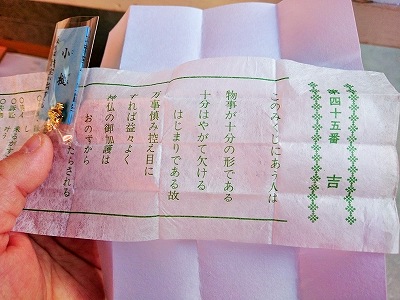 第四十五番 吉
このみくじにあう人は
物事が十分の形である
十分はやがて欠ける
はじまりである故
万事慎み控え目に
すれば益々よく
神仏の御加護は
おのずから
たらされる
小槌